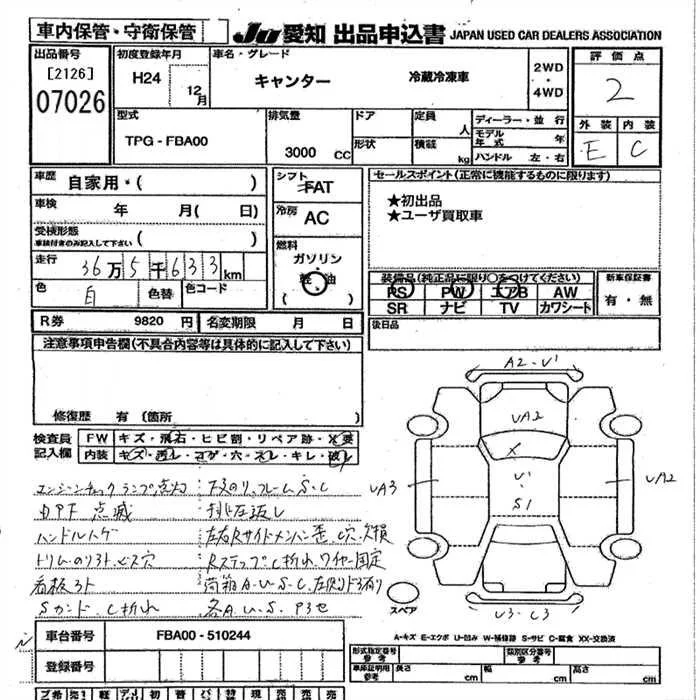 車内保管・守衛保管 JU 愛知 出品申込書 JAPAN USED CAR DEALERS ASSOCIATION
出品番号 [2126] 07026
初度登録年月 H24 12月
車名・グレード キャンター 冷蔵冷凍車
2WD ・ 4WD
評価点 2
外装 E 内装 C
型式 TPG - FBA00
排気量 3000 CC
ドア 形状
定員 人 積載 kg
ディーラー・並行
モデル年式 年
ハンドル 左・右
車歴 自家用・( )
車検 年 月( 日)
受検形態 車検付きのみ記入して下さい ( )
走行 36万5千633km
色 白 色替 色コード
シフト FAT
冷房 AC
燃料 ガソリン 軽油 ( )
セールスポイント(正常に機能するものに限ります)
★初出品
★ユーザ買取車
装備品(純正品に限り○をつけてください)
PS PW エアB AW
SR ナビ TV カワシート
新車保証書 有・無
R券 9820 円 名変期限 月 日
後日品
注意事項申告欄(不具合内容等は具体的に記入して下さい)
修復歴 有(箇所 )
検査員記入欄 FW キズ・飛石・ヒビ割・リペア跡・X要
内装 キズ・汚レ・コゲ・穴・ネレ・キレ・破レ
エンジンチェックランプ点灯 下廻り、フレームS・C
DPF 点滅
ハンドルハゲ
看板3ト
各A・U・S・P3セ
A2・U1
UA2
X
U1
S1
UA3
UA2
U3・C3
スペア
A-キズ E-エクボ U-凹み W-補修跡 S-サビ C-腐食 XX-交換済
車台番号 FBA00 - 510244
登録番号
形式指定番号 参考 類別区分番号 参考
車庫証明用 参考 長さ cm 幅 cm 高さ cm